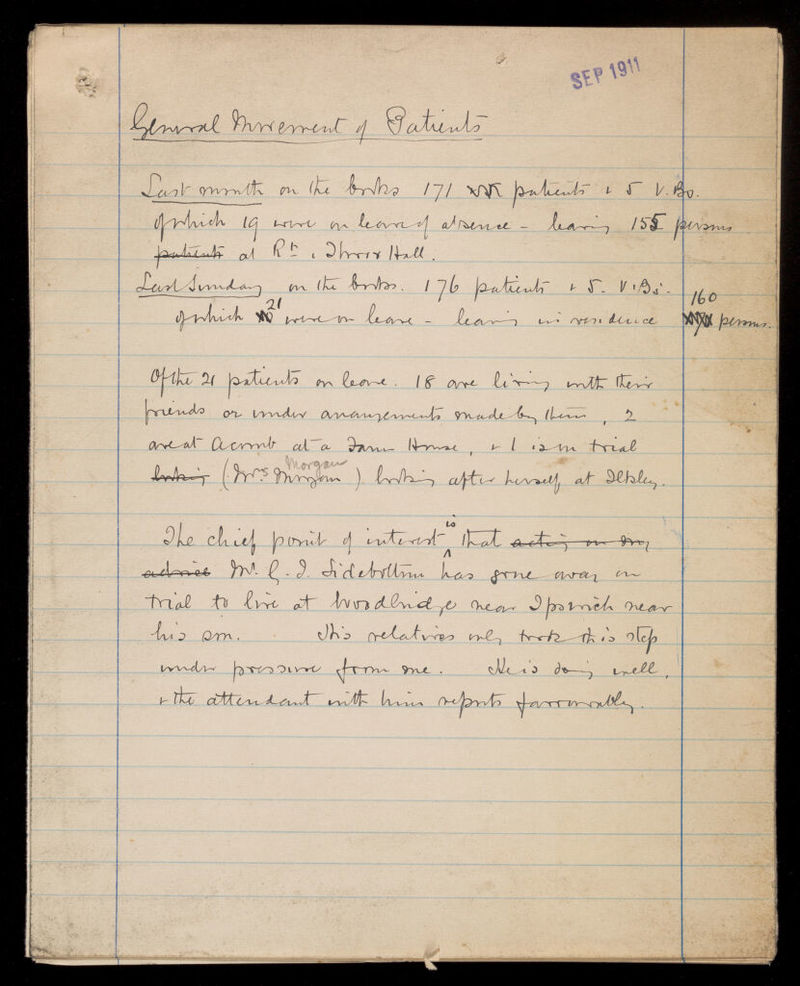 SEP 1911
General Movement of Patients
Last month on the books 171 patients & 5 V.Bs.
of which 19 were on leave of absence - leaving 155 persons
patients at Rt & Throxr Hall.
Last Sunday on the books. 176 patients & 5. V.Bs.
160
of which 21 were on leave - leaving in residence persons.
Of the 21 patients on leave. 18 are living with their
friends or under arrangements made by them, 2
are at Acomb at a Farm House, & 1 is on trial
looking (Mrs Morgan Morgan) looking after herself at Ilkley.
The chief point of interest is that acting on my
advice Mr. G. J. Sidebottom has gone away on
trial to live at Woodbridge near Ipswich near
his son. His relatives only took this step
under pressure from me. He is doing well,
& the attendant with him reports favourably.